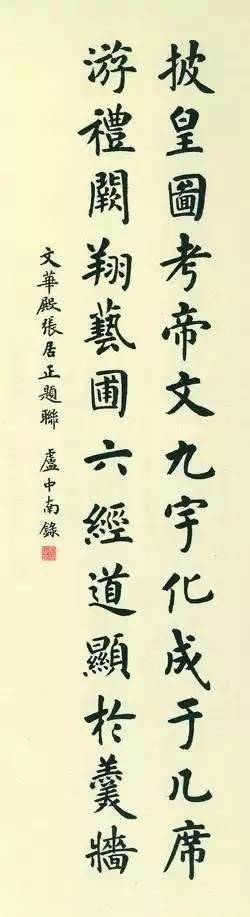 披皇圖考帝文九宇化成于几席
游禮闕翔藝圃六經道顯於羹牆
文華殿張居正題聯 盧中南錄